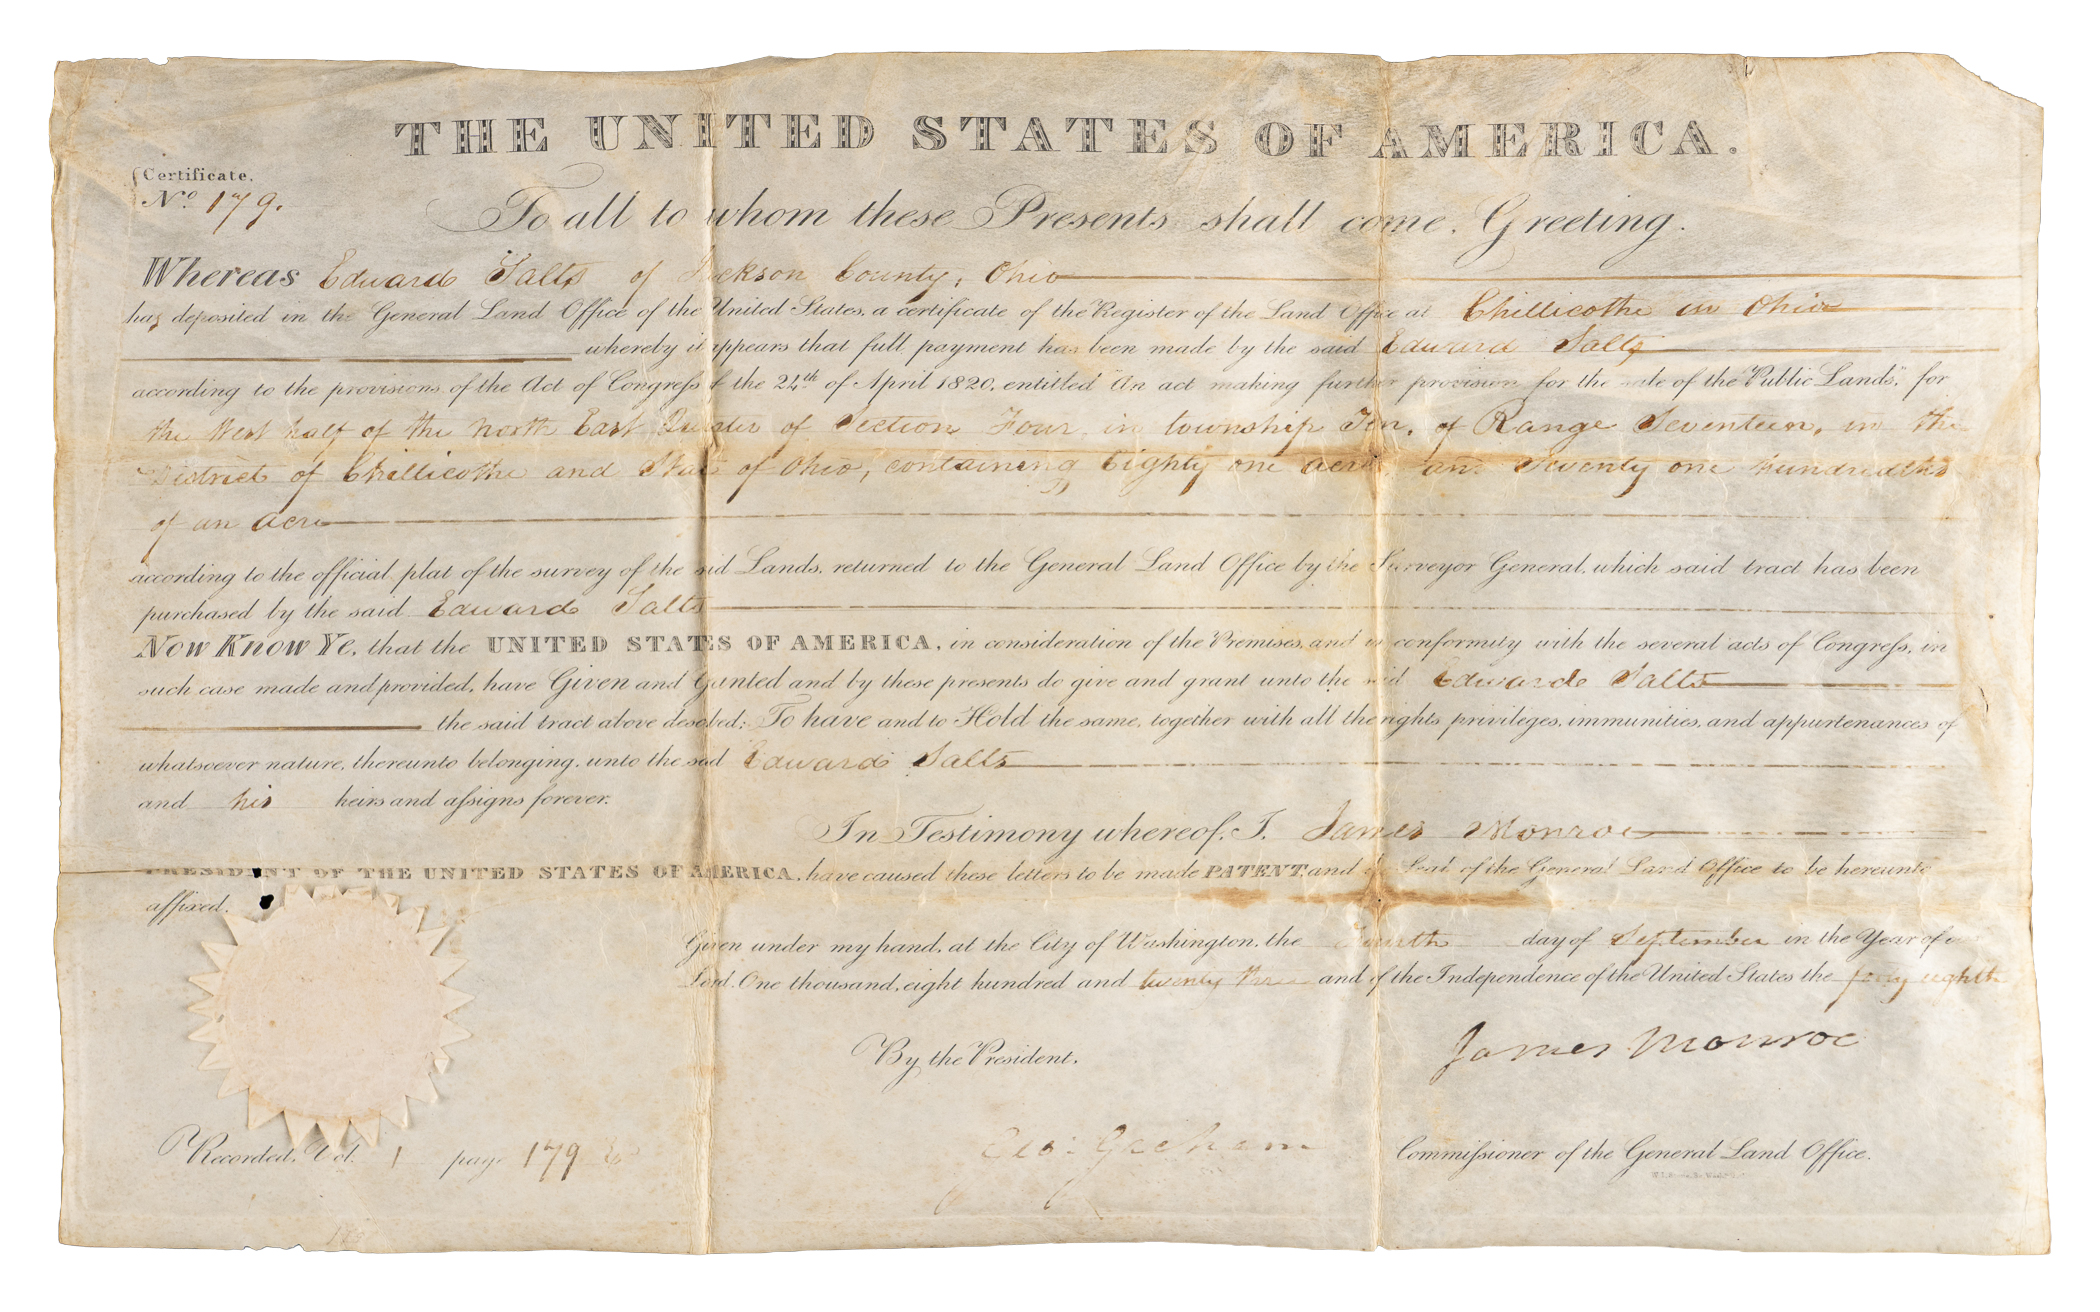 THE UNITED STATES OF AMERICA.
Certificate.
No. 179.
To all to whom these Presents shall come, Greeting.
Whereas Edward Salts of Jackson County, Ohio
has deposited in the General Land Office of the United States, a certificate of the Register of the Land Office at Chillicothe in Ohio
whereby it appears that full payment has been made by the said Edward Salts
according to the provisions of the Act of Congress of the 24th of April 1820, entitled "An act making further provision for the sale of the Public Lands," for
the West half of the North East Quarter of Section Four, in township Ten, of Range Seventeen, in the
District of Chillicothe and State of Ohio, containing Eighty one acres and Seventy one hundredths
of an acre
according to the official plat of the survey of the said Lands, returned to the General Land Office by the Surveyor General, which said tract has been
purchased by the said Edward Salts
Now Know Ye, that the UNITED STATES OF AMERICA, in consideration of the Premises, and in conformity with the several acts of Congress, in
such case made and provided, have Given and Granted and by these presents do give and grant unto the said Edward Salts
the said tract above described; To have and to Hold the same, together with all the rights privileges, immunities, and appurtenances of
whatsoever nature, thereunto belonging, unto the said Edward Salts
and his heirs and assigns forever.
In Testimony whereof, I, James Monroe
PRESIDENT OF THE UNITED STATES OF AMERICA, have caused these letters to be made PATENT, and the Seal of the General Land Office to be hereunto
affixed.
Given under my hand, at the City of Washington, the Fourth day of September in the Year of our
Lord, One thousand, eight hundred and twenty three and of the Independence of the United States the forty eighth
James Monroe
By the President,
Geo: Graham Commissioner of the General Land Office.
Recorded, Vol. 1 page 179